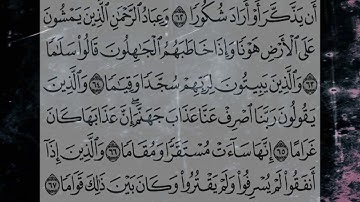 أَن يَذَّكَّرَ أَوْ أَرَادَ شُكُورًا ۝٦٢ وَعِبَادُ ٱلرَّحْمَٰنِ ٱلَّذِينَ يَمْشُونَ
عَلَى ٱلْأَرْضِ هَوْنًا وَإِذَا خَاطَبَهُمُ ٱلْجَٰهِلُونَ قَالُوا۟ سَلَٰمًا
۝٦٣ وَٱلَّذِينَ يَبِيتُونَ لِرَبِّهِمْ سُجَّدًا وَقِيَٰمًا ۝٦٤ وَٱلَّذِينَ
يَقُولُونَ رَبَّنَا ٱصْرِفْ عَنَّا عَذَابَ جَهَنَّمَ ۖ إِنَّ عَذَابَهَا كَانَ
غَرَامًا ۝٦٥ إِنَّهَا سَآءَتْ مُسْتَقَرًّا وَمُقَامًا ۝٦٦ وَٱلَّذِينَ إِذَآ
أَنفَقُوا۟ لَمْ يُسْرِفُوا۟ وَلَمْ يَقْتُرُوا۟ وَكَانَ بَيْنَ ذَٰلِكَ قَوَامًا ۝٦٧